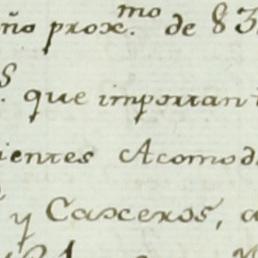 ño prox.mo de 83
s. que importan
ientes Acomod
y Caxceros, a